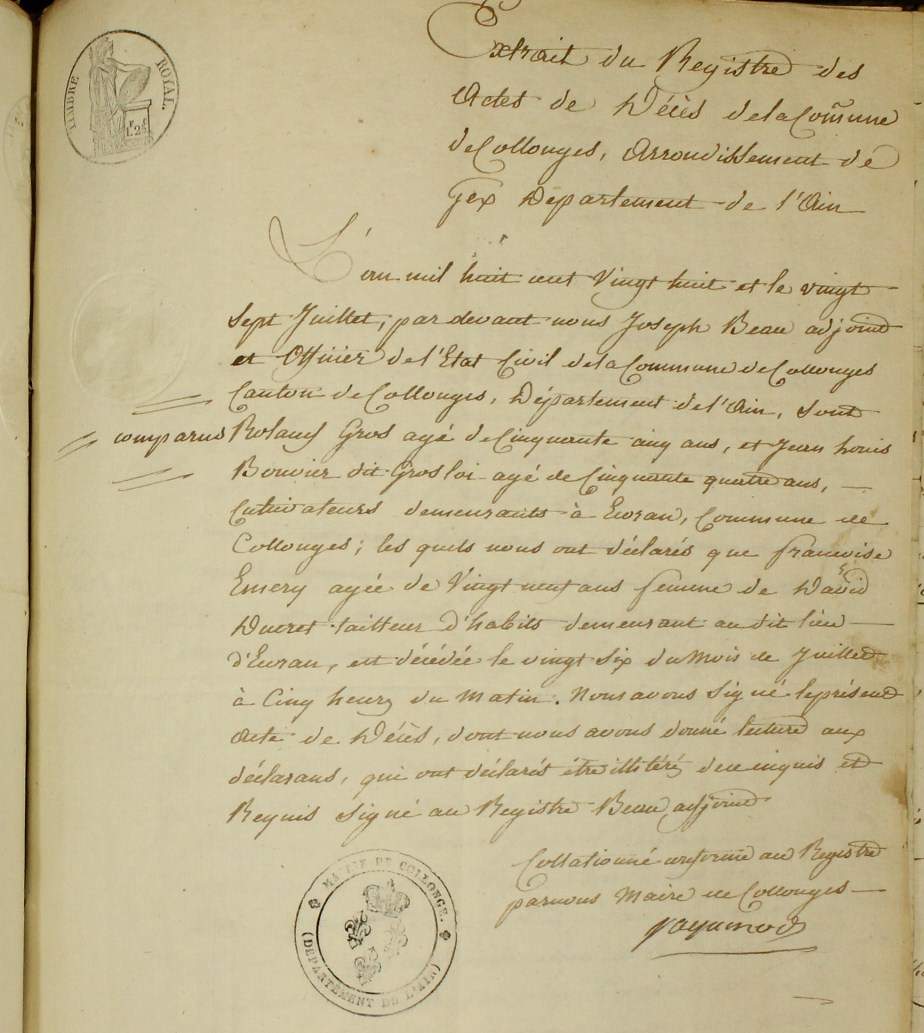 TIMBRE ROYAL.
Extrait du Registre des
Actes de Décès de la Com̃une
de Collonges, Arrondissement de
Gex Departement de l'Ain
L'an mil huit cent Vingt huit et le vingt
Sept Juillet, par devant nous Joseph Beau adjoint
et Officier de l'Etat Civil de la Commune de Collonges
Canton de Collonges, Département de l'Ain, sont
comparus Roland Gros agé de Cinquante cinq ans, et Jean Louis
Bouvier dit Grosloi agé de Cinquante quatre ans,
Cultivateurs demeurants à Ecoran, Commune de
Collonges; les quels nous ont déclarés que francoise
Emery agée de Vingt neuf ans femme de David
Ducret tailleur d'habits demeurant au dit lieu
d'Ecoran, est décédée le vingt six du Mois de Juillet
à Cinq heures du Matin. Nous avons Signé le présent
Acte de Décès, dont nous avons donné lecture aux
déclarans, qui ont déclarés être illitérés de ce enquis et
Requis Signé au Registre Beau adjoint
Collationné conforme au Registre
par nous Maire de Collonges
MAIRIE DE COLLONGE.
(DEPARTEMENT DE L'AIN)